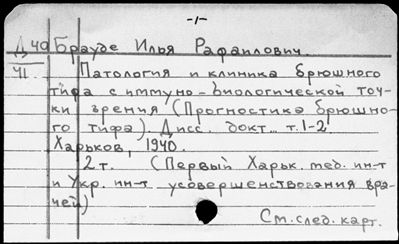 -1-
Д 40 Брауде Илья Рафаилович.
41. Патология и клиника брюшного
тифа с иммуно-биологической точ-
ки зрения (Прогностика брюшно-
го тифа). Дисс. докт. т. 1-2
Харьков, 1940.
2 т. (Первый Харьк. мед. ин-т
и Укр. ин-т усовершенствования вра-
чей)
См. след. карт.